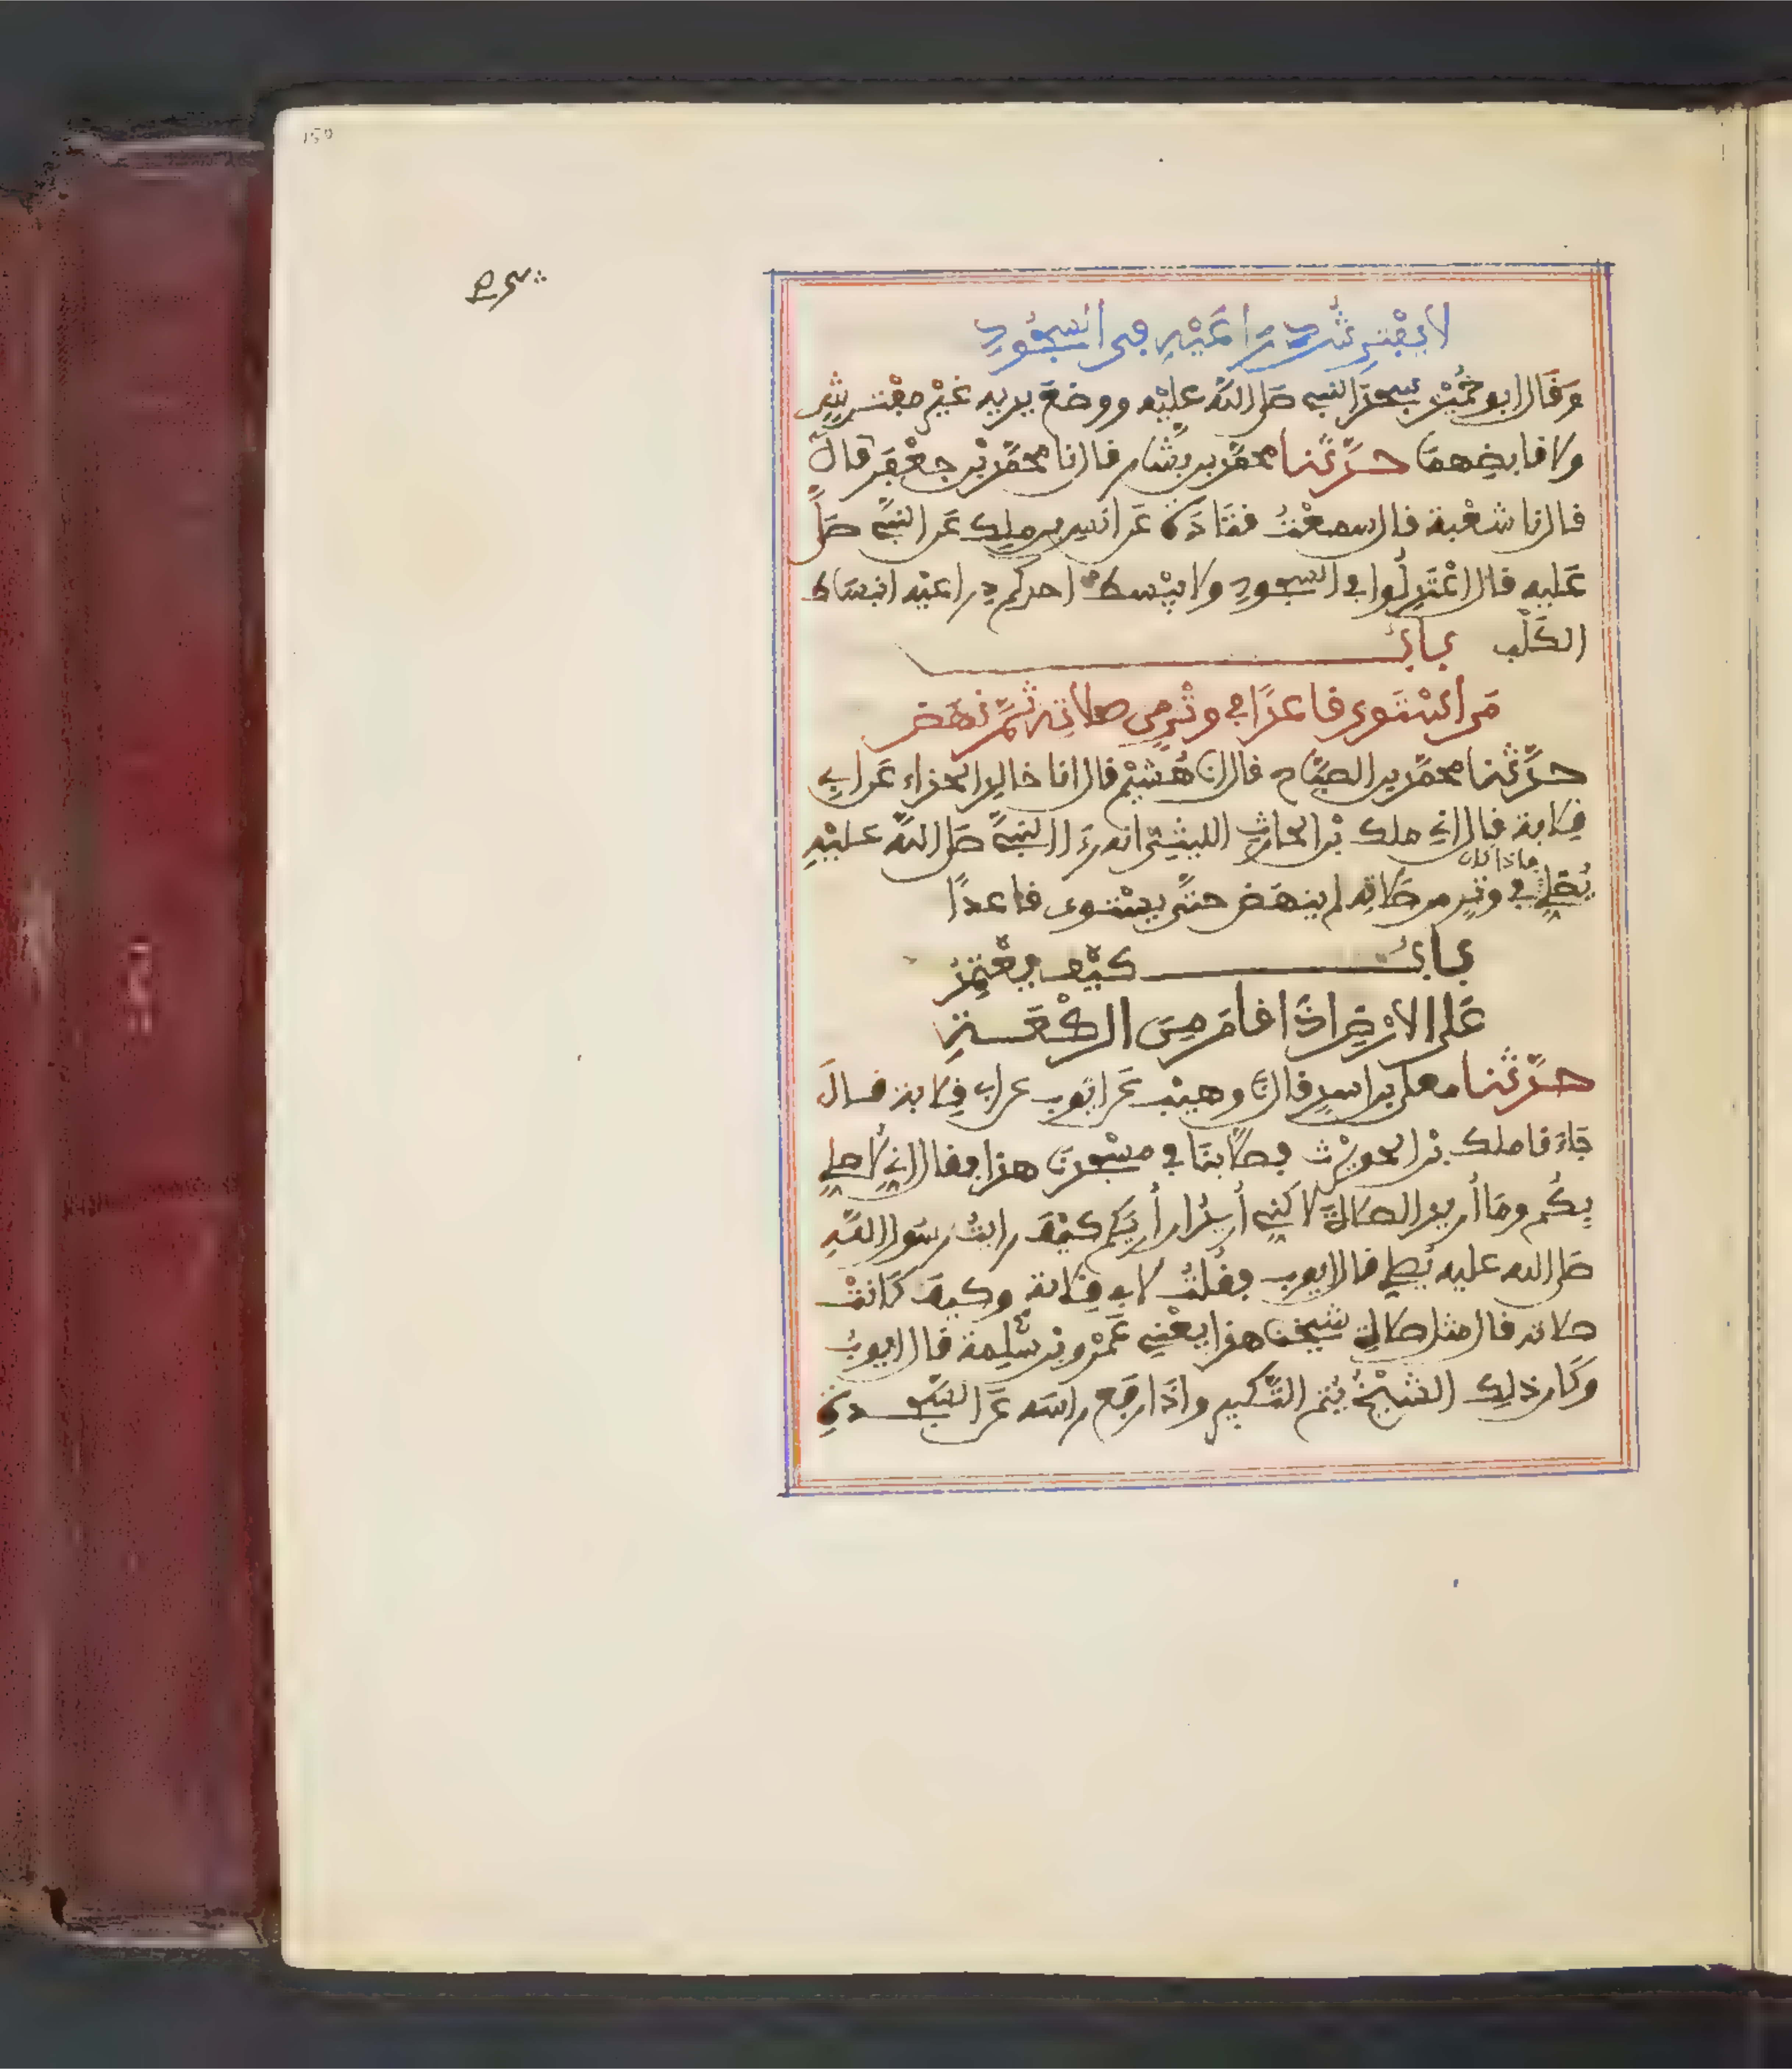 لا يفترش ذراعيه في السجود
وَقَال ابو حُمَيْد سجد النبي صلى الله عليه ووضع يديه غير مفترش
ولا قابضهما حدّثنا محمّد بن بشّار قال نا محمّد بن جعْفر قال
قال نا شعْبة قال سمعْتُ قتَادَة عَن انس بن ملك عَن النبيّ صلّى
عَليه قال اعْتَدِلُوا في السجود ولا يبْسط احدكم ذراعيْه انبسَاط
الكَلْب بابُ
مَن اسْتَوى قاعدًا في وتْرٍ من صلاته ثمّ نهَض
حدّثنا محمّد بن الصبّاح قال نا هُشَيْم قال انا خالد الحذاء عَن ابي
قلابة قال اني ملك بْن الحارث الليثيّ انه رءا النبيّ صلى اللّه عليْه
يُصلي فاذا كان في وترٍ من صلاته لم ينهَض حتّى يسْتوى قاعدًا
بابُ كيْف يعْتمدُ
عَلى الارْض اذَا قامَ مِنَ الركْعَةِ
حدّثنا معلى بن اسدٍ قال نا وهيْب عَن ايّوب عن ابي قلابة قال
جَاءَنا ملك بْن الحويْرث فصلّى بنَا في مسْجدنا هذا فقال إني لأصلي
بِكُم ومَا أُريد الصلاة لاكني أُريدُ ان أُريَكم كيْفَ رايتُ رسَول اللّهِ
صلى الله عليه يُصلي قال ايوب فقُلتُ لابي قلابة وكيفَ كَانتْ
صلاته قال مثل صلاة شيخنا هذا يعْني عَمْرو بن سَلِمة قال ايوبُ
وكَان ذلك الشيْخُ يُتم التّكبير واذَا رفَع راسَه عَن السّجدة